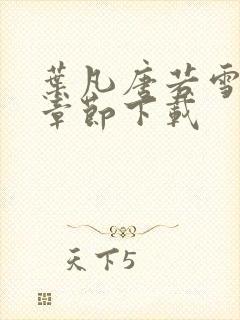 葉凡唐若雪
章節下載
天下5